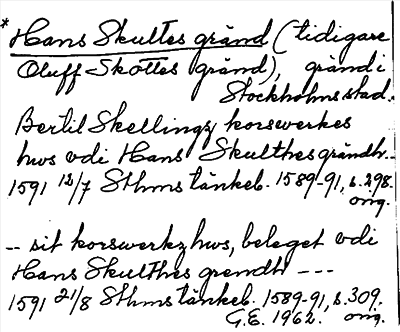 * Hans Skultes gränd (tidigare
Oluff Skottes gränd), gränd i
Stockholms stad.
Bertil Skellings korswerkes
hws vdi Hans Skulthes grändh. --
1591 12/7 Sthms tänkeb. 1589-91, s. 298.
orig.
-- sit korswerkz hws, beleget vdi
Hans Skulthes grendh ---
1591 21/8 Sthms tänkeb. 1589-91, s. 309.
G.E. 1962. orig.